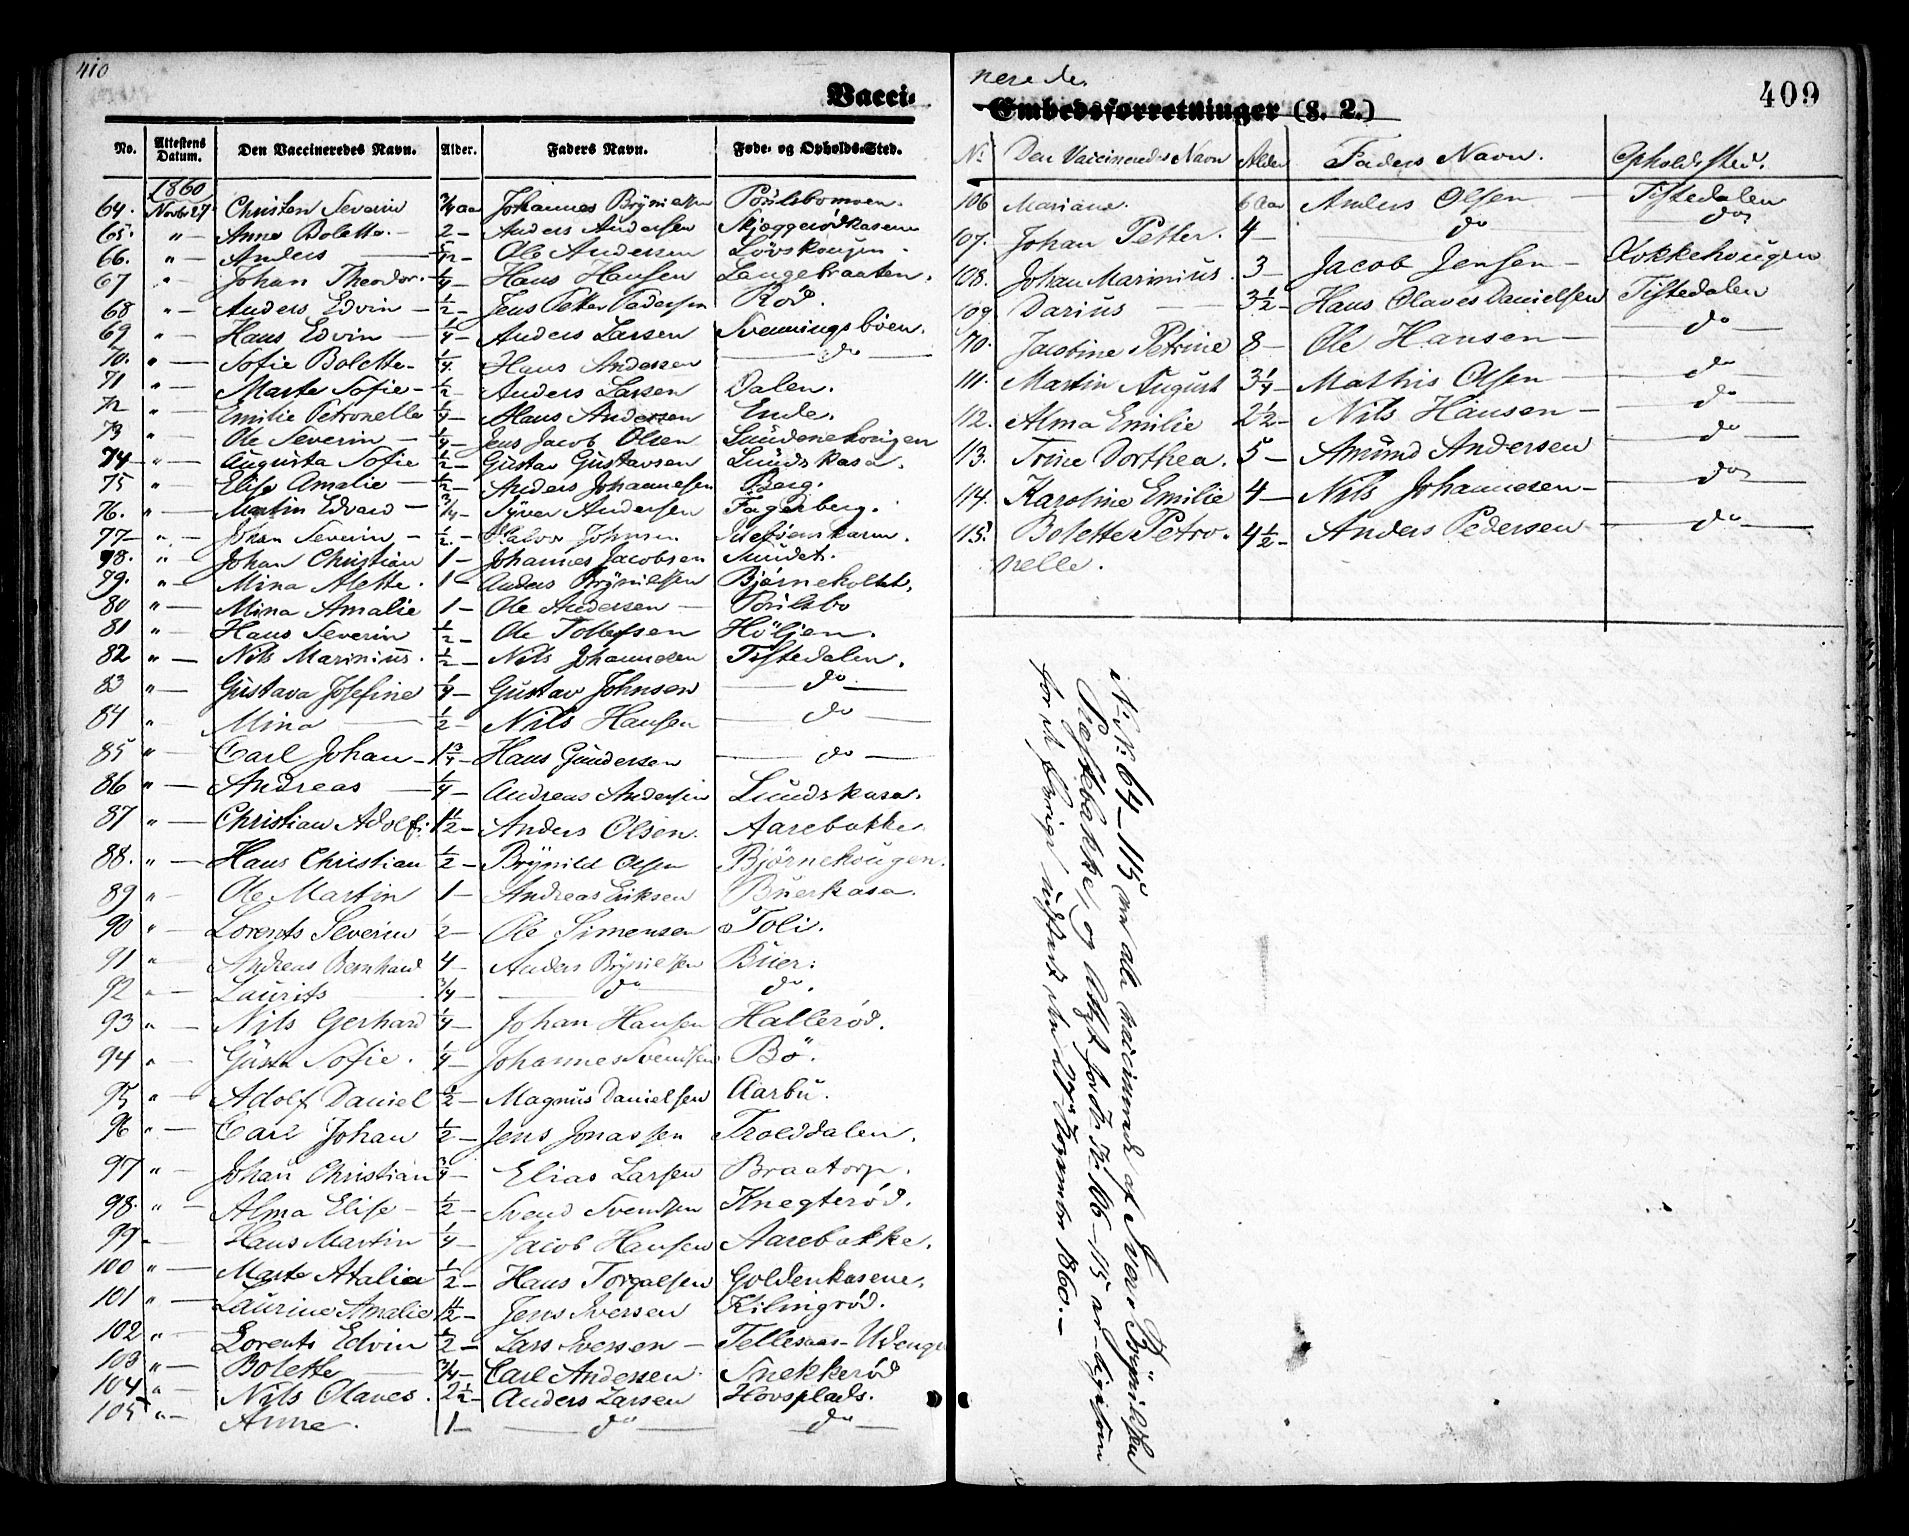 410
Vacci-
No. Attestens Datum. Den Vaccineredes Navn. Alder. Faders Navn. Føde- og Opholds-Sted.
1860
64. Novbr 27 Christen Severin 3/4 Aar Johannes Brynielsen
65. " — Anne Bolette — 2 — Anders Andersen Skjeggerødkasene
66. " — Anders — 5/12 — Ole Andersen Løvskougen -
67 " - Johan Theodor. 1/4 — Hans Hansen Langebraaten.
68 " - Anders Edvin — 1/2 — Jens Petter Pedersen Rød.
69 " - Hans Edvin — 1/4 — Anders Larsen Svenningsbøen.
70. " — Sofie Bolette - 1/4. Hans Andersen — do —
71 " — Marte Sofie - 1/2 — Anders Larsen Dalen.
72 " — Emilie Petronelle 1/4 — Hans Andersen Ende.
73 " — Ole Severin — 1/4 — Jens Jacob Olsen Sundenehougen
74 " — Augusta Sofie 1/2 — Gustav Gustavsen Lundskasa.
75 " — Elise Amalie — 1/2 — Anders Johannesen Berg.
76. " — Martin Edvard — 3/4 — Syver Andersen Fagerberg.
77 " — Johan Severin — 1/2. — Halvor Johnsen
78. " — Johan Christian 1 — Johannes Jacobsen Sundet.
79. " — Mina Alette. 1 — Anders Brynielsen Bjørneholtet.
80 " — Mina Amalie 1 — Ole Andersen — Pøulsbo
81 " — Hans Severin 1/2 — Ole Tollefsen Höljen.
82 " — Nils Marinius. 1/2 — Nils Johannesen Tistedalen.
83 " — Gustava Josefine 1/4 — Gustav Johnsen — do —
84 " Mina — 1/2 — Nils Hansen — do —
85 " Carl Johan — 1 3/4 — Hans Gundersen — do —
86 " — Andreas — 1/4 — Andreas Andersen Lundskasa.
87 " — Christian Adolf. 1 1/2 — Anders Olsen. Aarebakke
88. " — Hans Christian 1/2 — Brynild Olsen Bjørnehougen.
89 " - Ole Martin 1 — Andreas Eriksen Buerkasa.
90 " - Lorents Severin 1/2 — Ole Simensen Toli.
91 " - Andreas Bernhard 4 — Anders Brynielsen Buer:
92 " — Laurits — 3/4 — do do.
93 " — Nils Gerhard 1/4 — Johan Hansen Hallerød.
94 " — Gusta Sofie. 1/4 — Johannes Svendsen Bö.
95 " - Adolf Daniel 1/2 — Magnus Danielsen Aarbu.
96 " — Carl Johan 1/2 — Jens Jonassen Trolddalen.
97 " - Johan Christian 3/4 — Elias Larsen Braatorp.
98. " — Alma Elise - 1/2 — Svend Svendsen Knegterød.
99 - Hans Martin 1/4 — Jacob Hansen Aarebakke.
100 " — Marte Atalia 1/2 — Hans Torgalsen Goldenkasene.
101 " — Laurine Amalie 1 1/2 — Jens Iversen Kilingrød.
102 " — Lorents Edvin 1/2 — Lars Iversen —
103 " — Bolette — 3/4 — Carl Andersen. Snekkerød
104 " — Nils Olaves. 2 1/2 — Anders Larsen Hovsplads.
105 " — Anne. 1 — do — do —
nerede.
409
Embedsforretninger (§. 2.)
No. Den Vaccineredes Navn Alder Faders Navn. Opholdssted.
106 Mariane. 6 Aar Anders Olsen — Tistedalen
107. Johan Petter. 4 — do — do
108. Johan Marinius. 3 — Jacob Jensen — Kokkehougen
109 Darius — 3 1/2 — Hans Olaves Danielsen Tistedalen
110. Jacobine Petrine 8 — Ole Hansen — do —
111. Martin August 3 1/4 — Mathis Olsen — do —
112. Alma Emilie 2 1/2 — Nils Hansen — do —
113. Trine Dorthea. 5 — Amund Andersen do —
114. Karoline Emilie 4 — Nils Johannesen — do —
115. Bolette Petro- 4 1/2 — Anders Pedersen — do —
nelle.
No. 64—115 ere alle vaccinerede af Iver Brynildsen
Plesebakke, og Attest for No. 106—115 er ligesom
for de øvrige udstedt den 27de November 1860. —